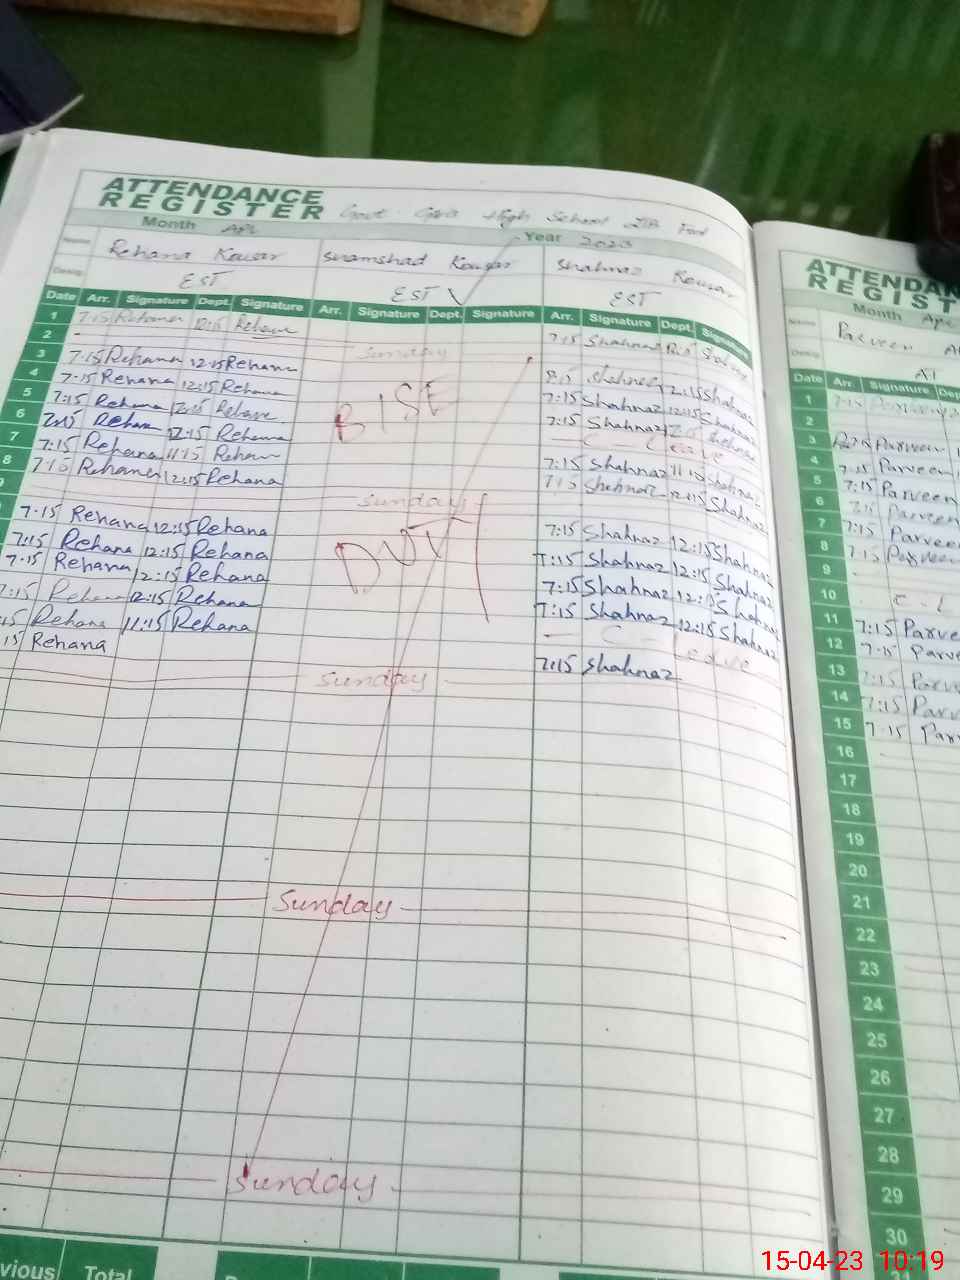 ATTENDANCE
REGISTER Govt Girls High School
Month Apr Year 2023
Name Rehana Kousar Shamshad Kousar Shahnaz Kousar
Desig EST EST EST
Date Arr. Signature Dept. Signature Arr. Signature Dept. Signature Arr. Signature Dept. Signature
1 7:15 Rehana 12:15 Rehana 7:15 Shahnaz
2 Sunday
3 7:15 Rehana 12:15 Rehana Shahnaz 12:15 Shahnaz
4 7:15 Rehana 12:15 Rehana 7:15 Shahnaz 12:15 Shahnaz
5 7:15 Rehana 12:15 Rehana BISE 7:15 Shahnaz
6 7:15 Rehana 12:15 Rehana C Leave
7 7:15 Rehana 11:15 Rehana 7:15 Shahnaz 11:15 Shahnaz
8 7:15 Rehana 12:15 Rehana 7:15 Shahnaz 12:15 Shahnaz
9 Sunday
7:15 Rehana 12:15 Rehana 7:15 Shahnaz 12:15 Shahnaz
7:15 Rehana 12:15 Rehana DUTY 7:15 Shahnaz 12:15 Shahnaz
7:15 Rehana 12:15 Rehana 7:15 Shahnaz 12:15 Shahnaz
7:15 Rehana 12:15 Rehana 7:15 Shahnaz 12:15 Shahnaz
15 Rehana 11:15 Rehana C - Leave
15 Rehana 7:15 Shahnaz
Sunday
Sunday
Sunday
vious Total
ATTENDAN
REGIST
Month Apr
Name Parveen
Desig
Date Arr. Signature De
1 7:15 Parveen
2
3 Parveen
4 7:15 Parveen
5 7:15 Parveen
6 7:15 Parveen
7 7:15 Parveen
8 7:15 Parveen
9
10 C-L
11 7:15 Parve
12 7:15 Parve
13 7:15 Parv
14 7:15 Parv
15 7:15 Par
16
17
18
19
20
21
22
23
24
25
26
27
28
29
30
15-04-23 10:19